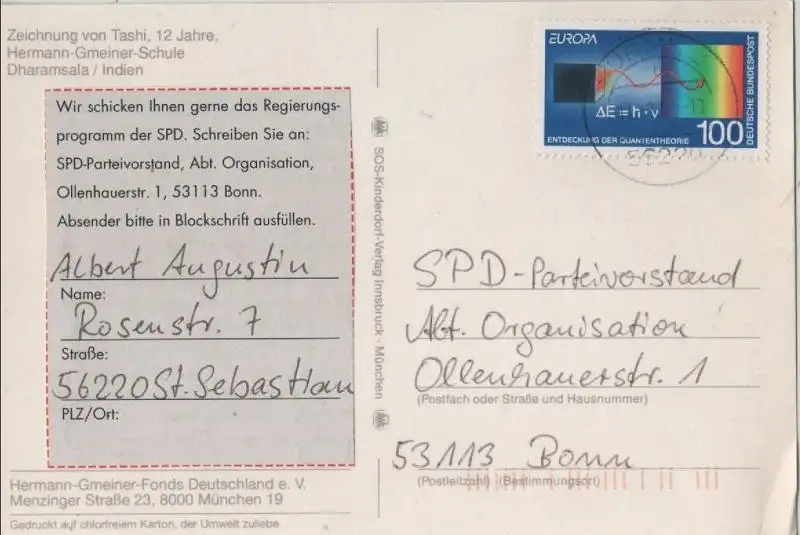 Zeichnung von Tashi, 12 Jahre,
Hermann-Gmeiner-Schule
Dharamsala / Indien
Wir schicken Ihnen gerne das Regierungs-
programm der SPD. Schreiben Sie an:
SPD-Parteivorstand, Abt. Organisation,
Ollenhauerstr. 1, 53113 Bonn.
Absender bitte in Blockschrift ausfüllen.
Albert Augustin
Name:
Rosenstr. 7
Straße:
56220 St. Sebastian
PLZ/Ort:
Hermann-Gmeiner-Fonds Deutschland e. V.
Menzinger Straße 23, 8000 München 19
Gedruckt auf chlorfreiem Karton, der Umwelt zuliebe
SOS-Kinderdorf-Verlag Innsbruck - München
EUROPA
ΔE = h · ν
100
ENTDECKUNG DER QUANTENTHEORIE
DEUTSCHE BUNDESPOST
56220
SPD-Parteivorstand
Abt. Organisation
Ollenhauerstr. 1
(Postfach oder Straße und Hausnummer)
53113 Bonn
(Postleitzahl) (Bestimmungsort)